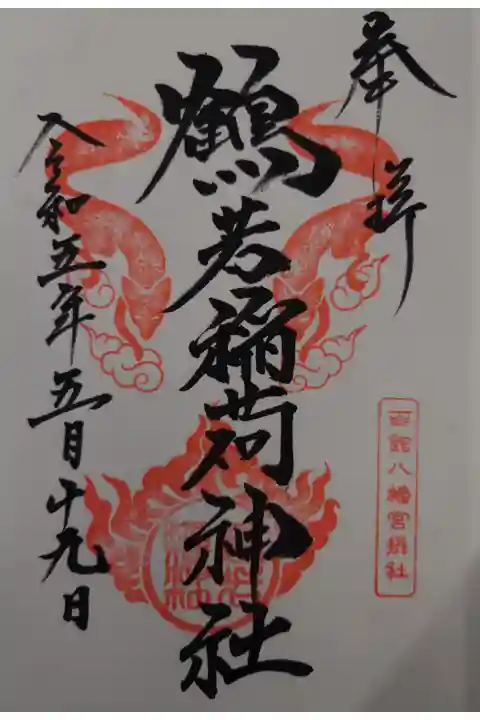 奉拝
函館八幡宮摂社
鶴若稲荷神社
令和五年五月十九日